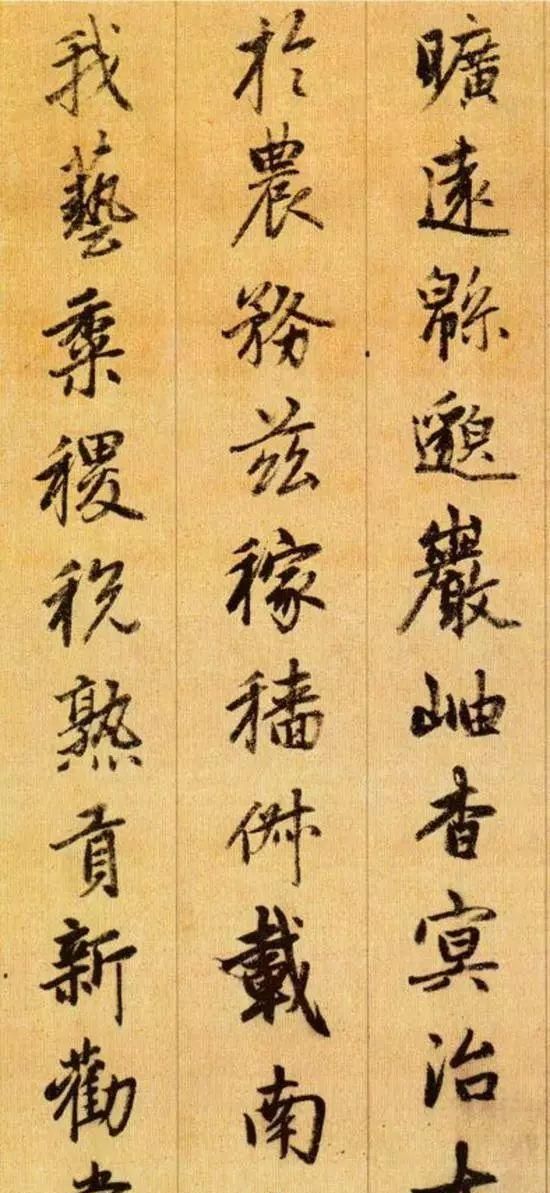 曠遠緜邈巖岫杳冥治
於農務茲稼穡俶載南
我藝黍稷稅熟貢新勸